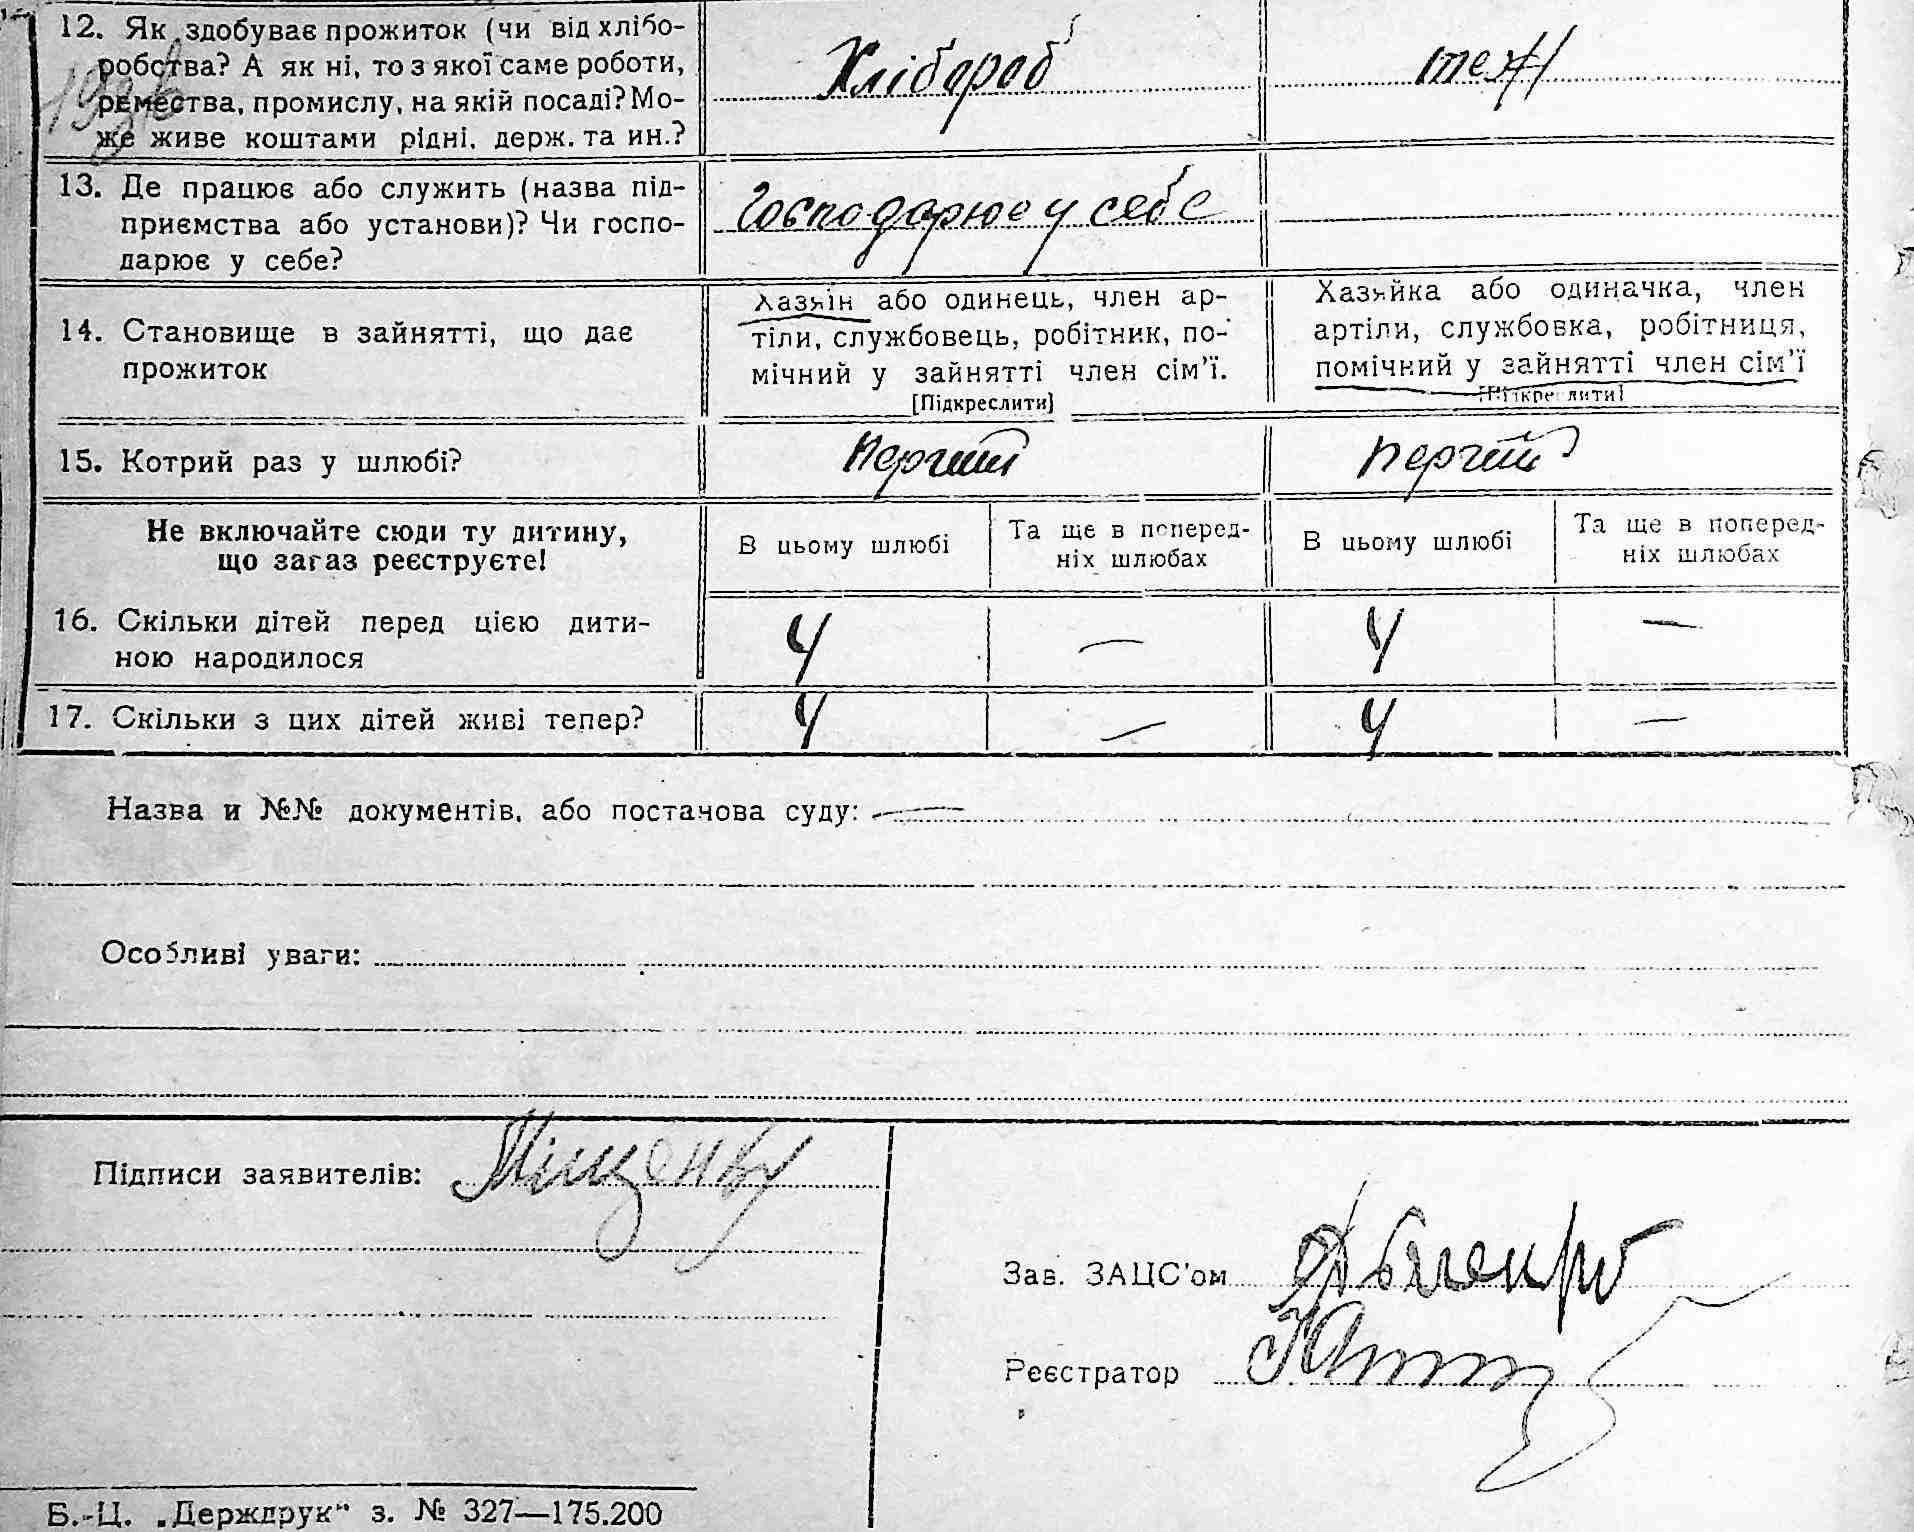 12. Як здобуває прожиток (чи від хлібо-
робства? А як ні, то з якої саме роботи,
ремества, промислу, на якій посаді? Мо-
же живе коштами рідні, держ. та ин.?
Хлібороб
теж
13. Де працює або служить (назва під-
приємства або установи)? Чи госпо-
дарює у себе?
Господарює у себе
14. Становище в зайнятті, що дає
прожиток
Хазяін або одинець, член ар-
тіли, службовець, робітник, по-
мічний у зайнятті член сім'ї.
[Підкреслити]
Хазяйка або одиначка, член
артіли, службовка, робітниця,
помічний у зайнятті член сім'ї
[Підкреслити]
15. Котрий раз у шлюбі?
Перший
Перший
Не включайте сюди ту дитину,
що загаз реєструєте!
В цьому шлюбі
Та ще в поперед-
ніх шлюбах
В цьому шлюбі
Та ще в поперед-
ніх шлюбах
16. Скільки дітей перед цією дити-
ною народилося
4 — 4 —
17. Скільки з цих дітей живі тепер?
4 — 4 —
Назва и №№ документів, або постанова суду: —
Особливі уваги:
Підписи заявителів: Міщенко
Зав. ЗАЦС'ом
Реєстратор
Б.-Ц. „Держдрук" з. № 327—175.200